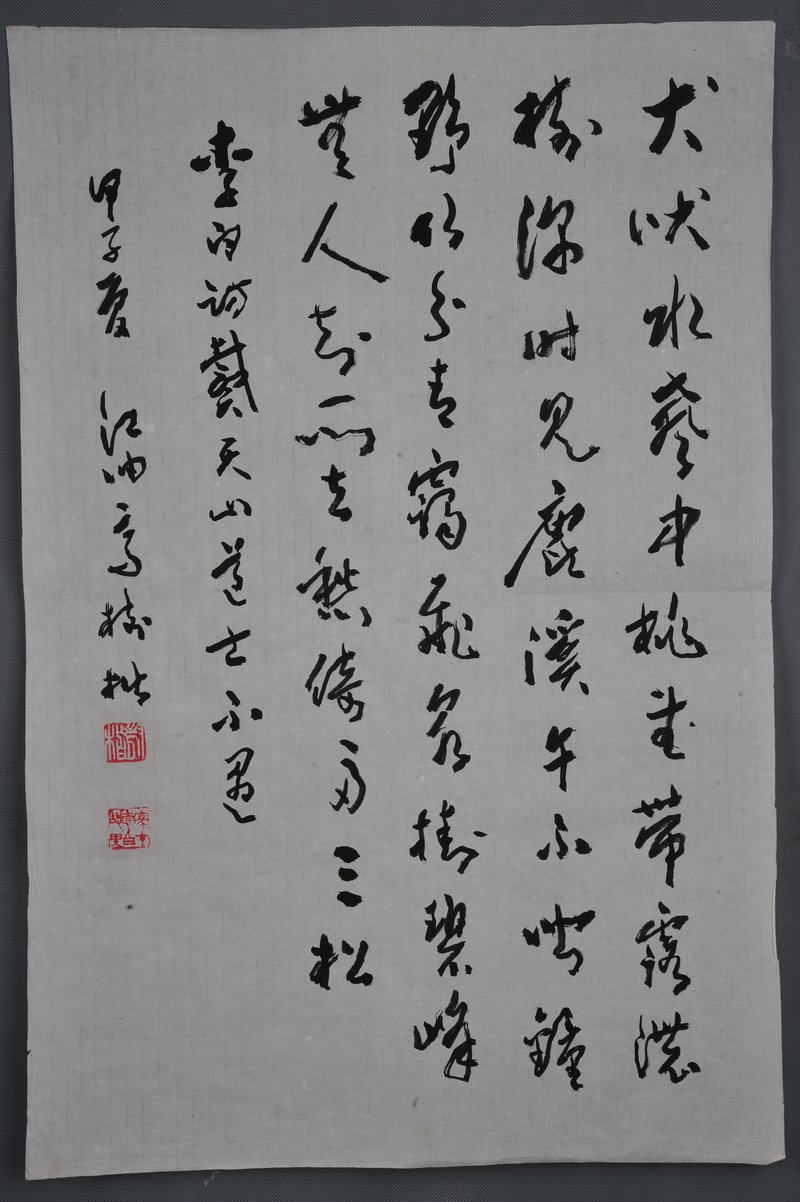 犬吠水聲中桃花帶露濃
樹深時見鹿溪午不聞鐘
野竹分青靄飛泉掛碧峰
無人知所去愁倚兩三松
李白訪戴天山道士不遇
甲子夏 江油 樹楷